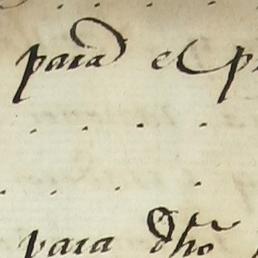 para el p
para dho